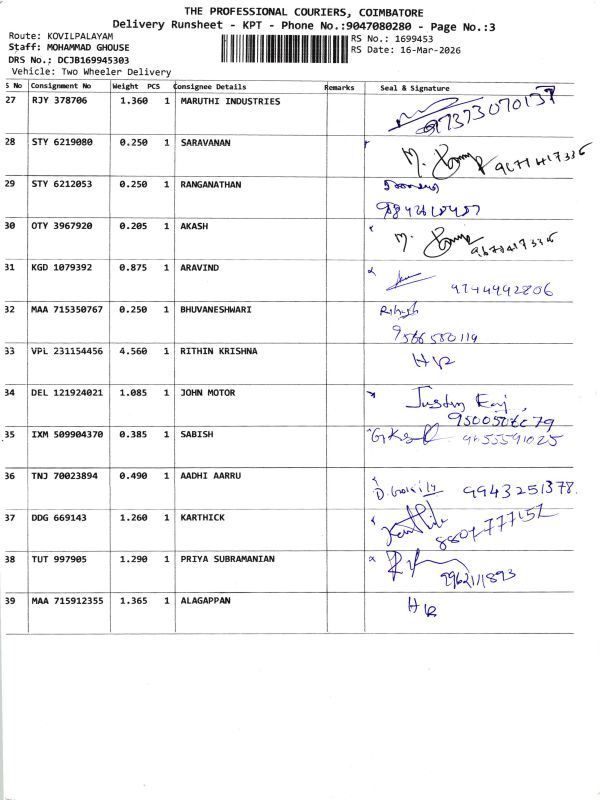 THE PROFESSIONAL COURIERS, COIMBATORE
Delivery Runsheet - KPT - Phone No.:9047080280 - Page No.:3
Route: KOVILPALAYAM
Staff: MOHAMMAD GHOUSE
DRS No.: DCJB169945303
Vehicle: Two Wheeler Delivery
RS No.: 1699453
RS Date: 16-Mar-2026
S No Consignment No Weight PCS Consignee Details Remarks Seal & Signature
27 RJY 378706 1.360 1 MARUTHI INDUSTRIES
28 STY 6219080 0.250 1 SARAVANAN
29 STY 6212053 0.250 1 RANGANATHAN
30 OTY 3967920 0.205 1 AKASH
31 KGD 1079392 0.875 1 ARAVIND
9744992806
32 MAA 715350767 0.250 1 BHUVANESHWARI
9566580114
33 VPL 231154456 4.560 1 RITHIN KRISHNA
34 DEL 121924021 1.085 1 JOHN MOTOR
35 IXM 509904370 0.385 1 SABISH
9655591025
36 TNJ 70023894 0.490 1 AADHI AARRU
9943251378
37 DDG 669143 1.260 1 KARTHICK
38 TUT 997905 1.290 1 PRIYA SUBRAMANIAN
39 MAA 715912355 1.365 1 ALAGAPPAN